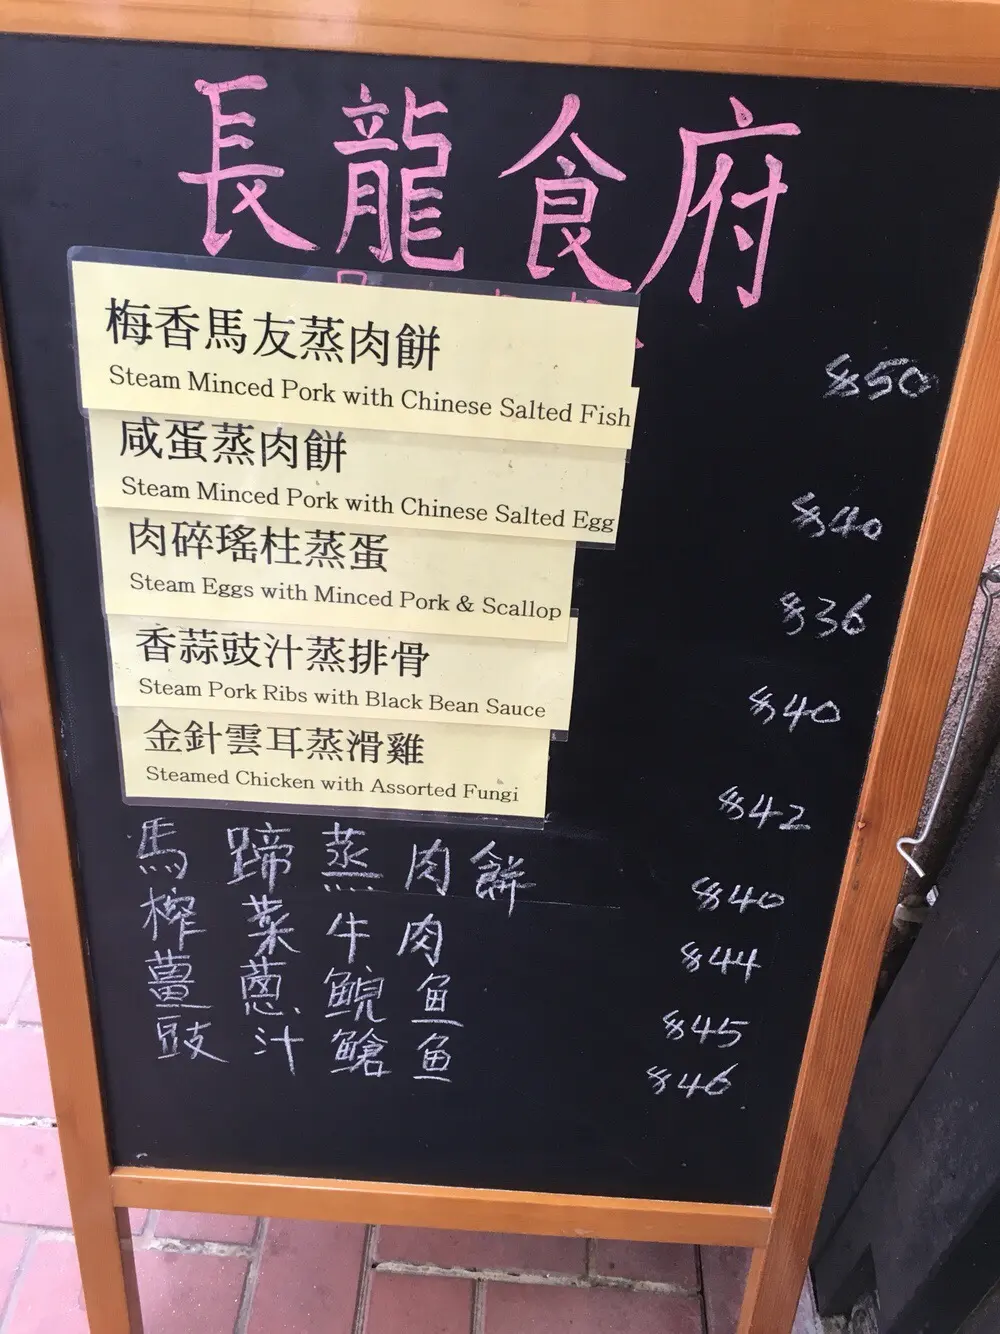 長龍食府
梅香馬友蒸肉餅
Steam Minced Pork with Chinese Salted Fish
$50
咸蛋蒸肉餅
Steam Minced Pork with Chinese Salted Egg
$40
肉碎瑤柱蒸蛋
Steam Eggs with Minced Pork & Scallop
$36
香蒜豉汁蒸排骨
Steam Pork Ribs with Black Bean Sauce
$40
金針雲耳蒸滑雞
Steamed Chicken with Assorted Fungi
$42
馬蹄蒸肉餅 $40
榨菜牛肉 $44
薑蔥鯇魚 $45
豉汁鯧魚 $46